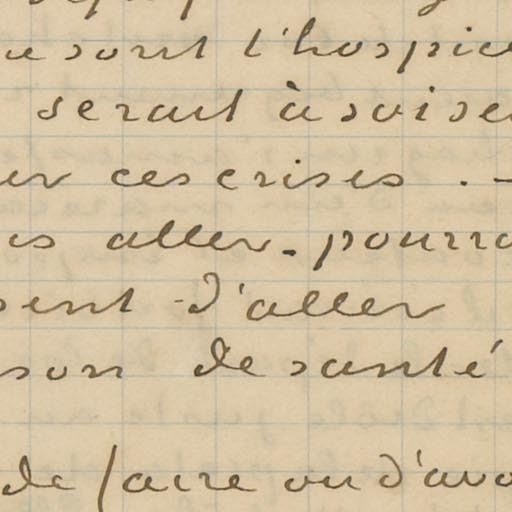 sont l'hospice
serait à soise
er ces crises. -
is aller. pourra
sent d'aller
son de santé
de faire ou d'avo